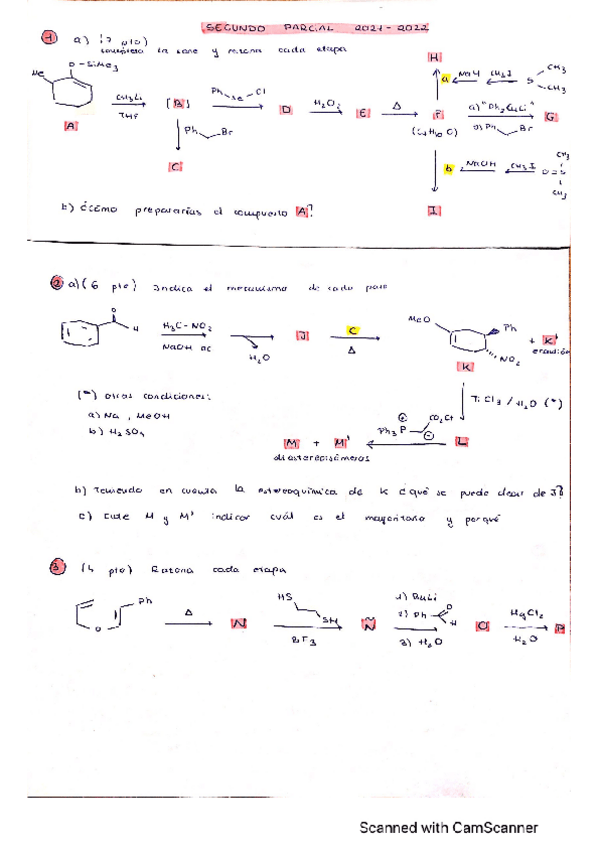 SEGUNDO PARCIAL 2021-2022
1 a) (7 pto)
completa la serie y razona cada etapa
H
O-SiMe3
Me
a NaH CH3I S CH3
CH3
CH3Li
THF
[B]
Ph Se Cl
D
H2O2
E
Δ
F
a) "Ph2CuLi"
b) Ph Br
G
A
(C8H10O)
Ph Br
C
b NaOH CH3I O=S CH3
CH3
b) ¿Cómo prepararías el compuesto A?
I
2 a) (6 pto) Indica el mecanismo de cada paso
O
H
H3C-NO2
NaOH ac
H2O
J
C
Δ
MeO
Ph
NO2
+ K'
K
(*) otras condiciones:
a) Na, MeOH
b) H2SO4
TiCl3/H2O (*)
Ph3P CO2Et
M + M'
L
diastereoisómeros
b) Teniendo en cuenta la estereoquímica de K ¿qué se puede decir de J?
c) Entre M y M' indicar cuál es el mayoritario y porqué
3 (4 pto) Razona cada etapa
Ph
O
Δ
N
HS
SH
BF3
Ñ
1) BuLi
2) Ph O H
3) H2O
O
HgCl2
H2O
P
Scanned with CamScanner